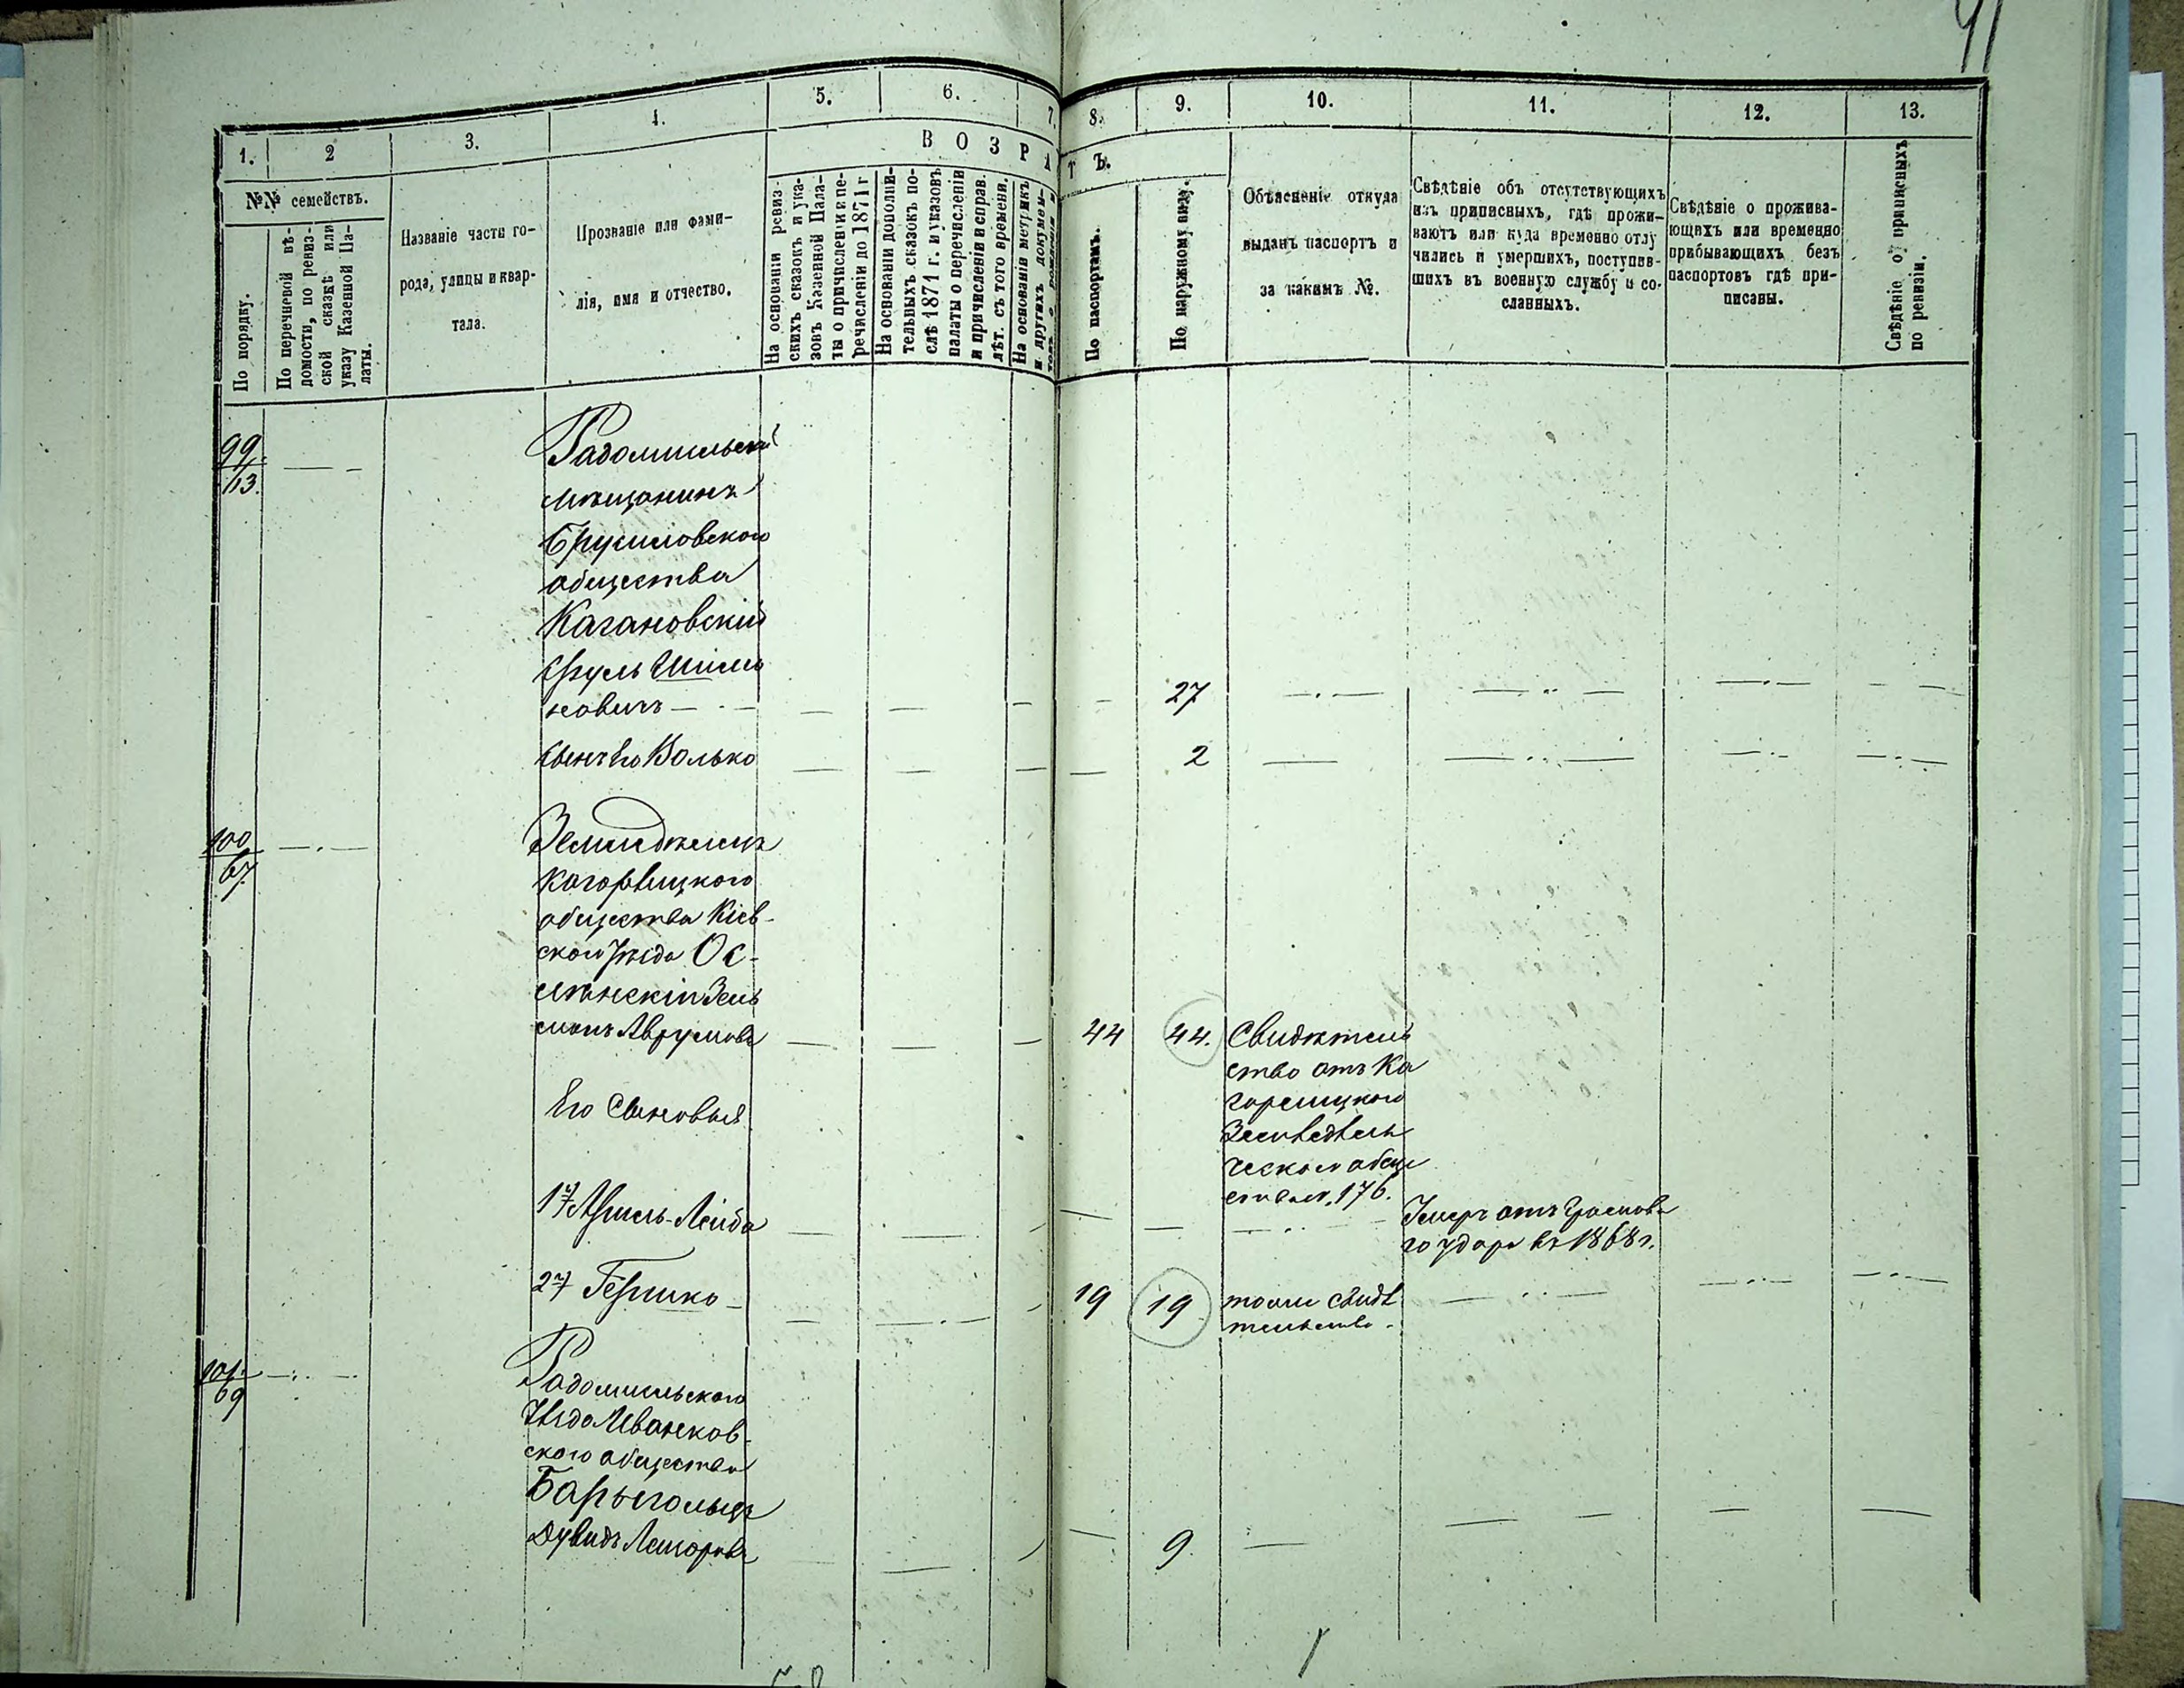 91
1.
2
3.
4.
5.
6.
7.
8.
9.
10.
11.
12.
13.
ВОЗРА
ТЪ.
№№ семействъ.
По порядку.
По перечневой вѣ-
домости, по ревиз-
ской сказкѣ или
указу Казенной Па-
латы.
Названіе части го-
рода, улицы и квар-
тала.
Прозваніе или фами-
лія, имя и отчество.
На основаніи ревиз-
скихъ сказокъ и ука-
зовъ Казенной Пала-
ты о причисленіи и пе-
речисленіи до 1871 г
На основаніи дополни-
тельныхъ сказокъ по-
слѣ 1871 г. и указовъ
палаты о перечисленіи
и причисленіи и справ.
лѣт. съ того времени.
На основаніи метрикъ
и другихъ докумен-
По паспортамъ.
По наружному виду.
Объясненіе откуда
выданъ паспортъ и
за какимъ №.
Свѣдѣніе объ отсутствующихъ
изъ приписныхъ, гдѣ прожи-
ваютъ или куда временно отлу
чились и умершихъ, поступив-
шихъ въ военную службу и со-
сланныхъ.
Свѣдѣніе о прожива-
ющихъ или временно
прибывающихъ безъ
паспортовъ гдѣ при-
писаны.
Свѣдѣніе о приписныхъ
по ревизіи.
99
113.
Радомисльскій
мѣщанинъ
Брусиловского
общества
Кагановскій
Сруль Шимо
новичъ
27
Сынъ Его Волько
2
100
67
Земледѣлецъ
Кагорлицкого
общества Кіев-
ского Уѣзда Ос-
Аврумовъ
44
44.
Свидѣтель
ство отъ Ка
горлицкого
Земледѣль
ческого обще
ства №. 176.
Его Сыновья
1й Лейба
Умеръ отъ Громова
го удара въ 1868 г.
2й Гершко
19
19
тоже свидѣ
тельство.
101
69
Радомисльского
Уѣзда Иванков-
ского общества
Дувидъ Лейзоровъ
9